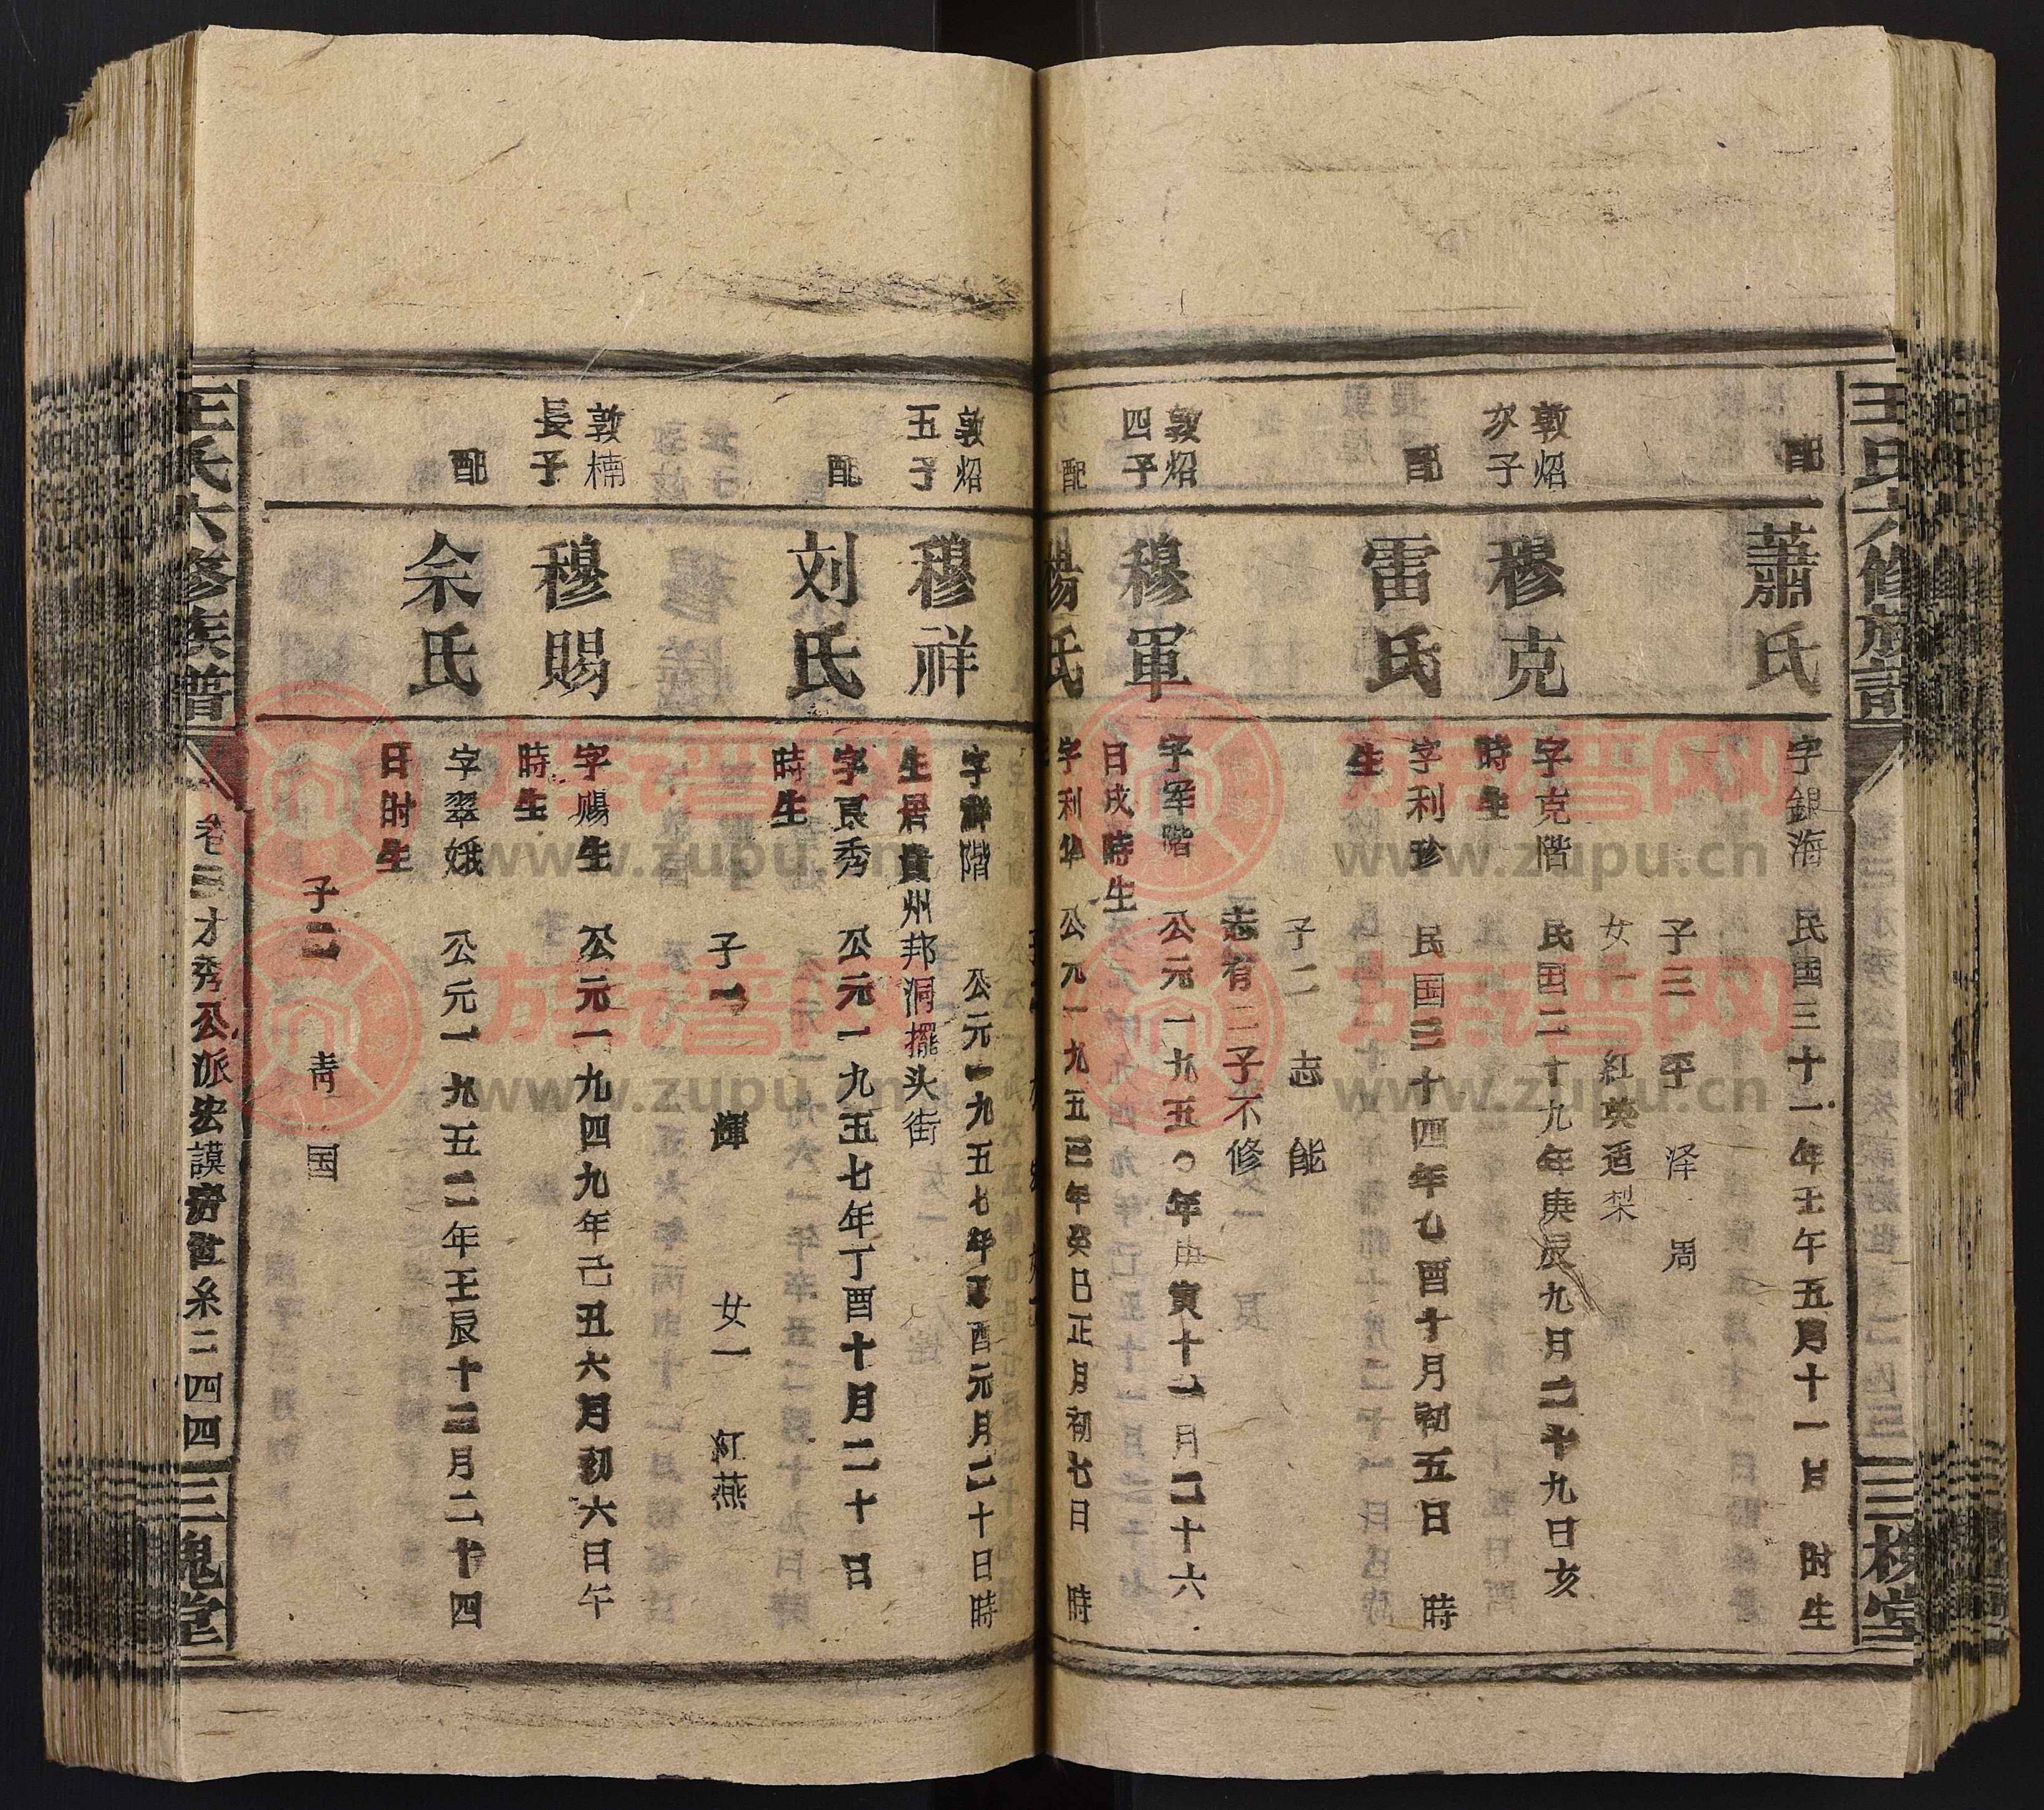 王氏六修族譜
三槐堂
配
蕭氏
字銀海 民国三十一年壬午五月十一日 时生
子三 平 泽 周
女一 紅英适梨
敦炤
次子
穆克
字克階 民国二十九年庚辰九月二十九日亥
時生
配
雷氏
字利珍 民国三十四年乙酉十月初五日 時
生
子二 志 能
志有二子不修
敦炤
四子
穆軍
字军階 公元一九五〇年庚寅十一月二十六
日戌時生
配
楊氏
字利华 公元一九五三年癸巳正月初七日 時
敦炤
五子
穆祥
字祥階 公元一九五七年丁酉元月二十日時
生居貴州邦洞擺头街
配
刘氏
字良秀 公元一九五七年丁酉十月二十日
時生
子一 輝 女一 紅燕
敦楠
長子
穆賜
字赐生 公元一九四九年己丑六月初六日午
時生
配
余氏
字翠娥 公元一九五二年壬辰十二月二十四
日时生
子二 青 国
王氏六修族譜
卷三才秀公派宏謨房世系二四四
三槐堂
族谱网
www.zupu.cn
族谱网
www.zupu.cn
族谱网
www.zupu.cn
族谱网
www.zupu.cn